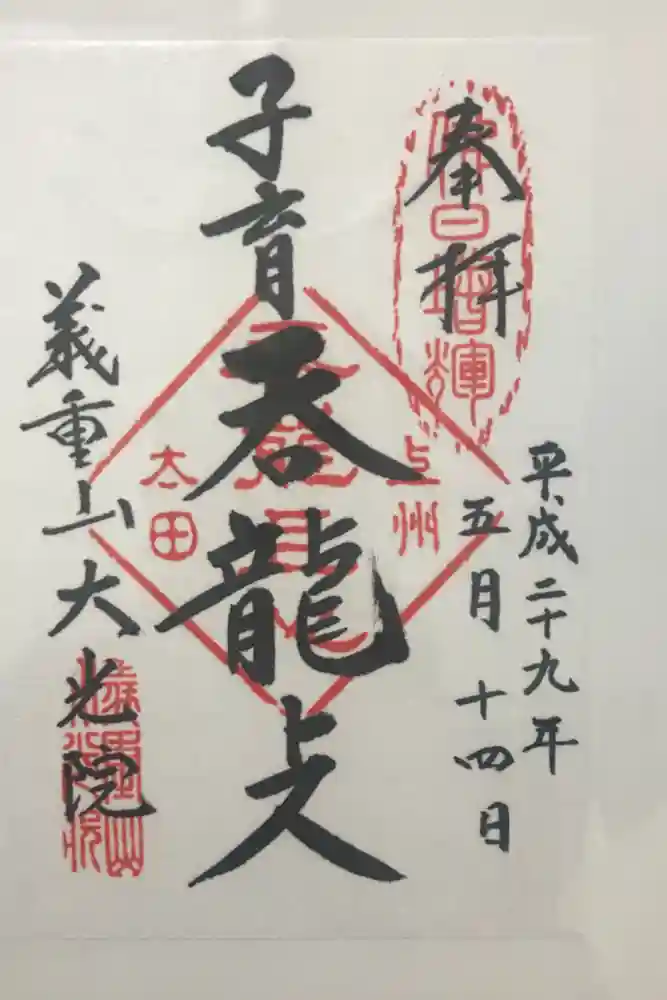 奉拝
佛日増輝
平成二十九年
五月十四日
子育呑龍上人
上州
太田
義重山大光院